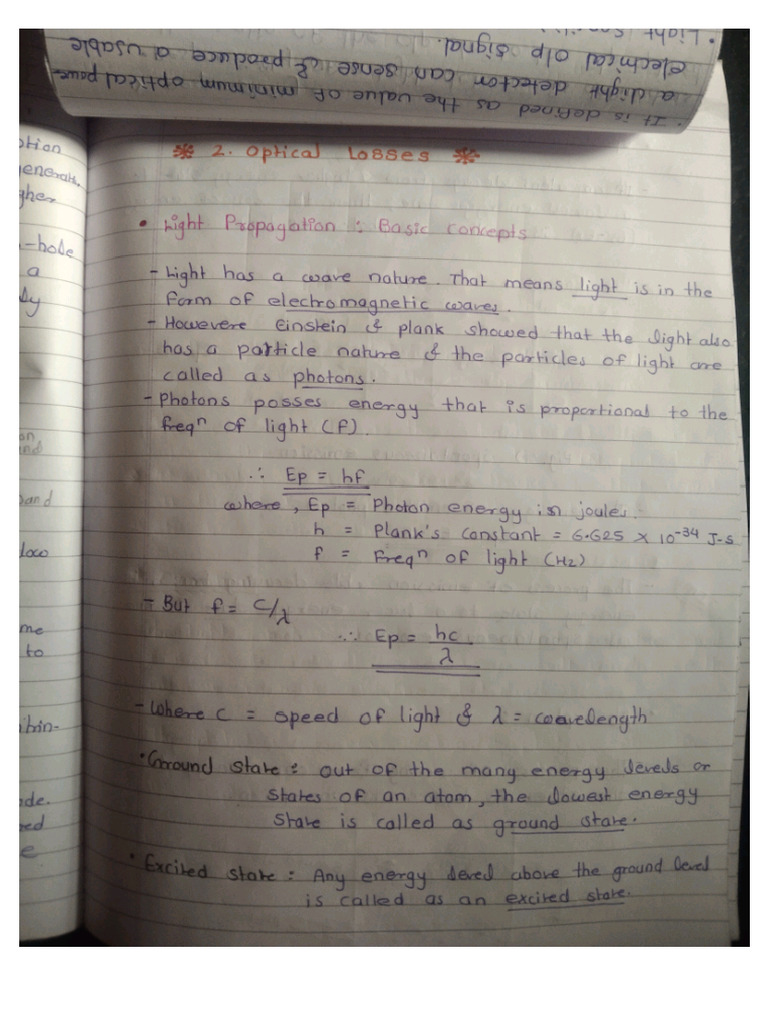 • It is defined as the value of minimum optical power
a light detector can sense & produce a usable
electrical o/p signal.
• Light
2. Optical Losses
• Light Propagation : Basic concepts
- Light has a wave nature. That means light is in the
form of electromagnetic waves.
- Howevere Einstein & plank showed that the light also
has a particle nature & the particles of light are
called as photons.
- Photons posses energy that is proportional to the
freqⁿ of light (f).
∴ Ep = hf
where, Ep = Photon energy in joules.
h = Plank's constant = 6.625 × 10⁻³⁴ J-s
f = Freqⁿ of light (Hz)
- But f = c/λ
∴ Ep = hc/λ
- Where c = speed of light & λ = wavelength
• Ground state : out of the many energy levels or
states of an atom, the lowest energy
state is called as ground state.
• Excited state : Any energy level above the ground level
is called as an excited state.
-hole
a
and
me
to
de.